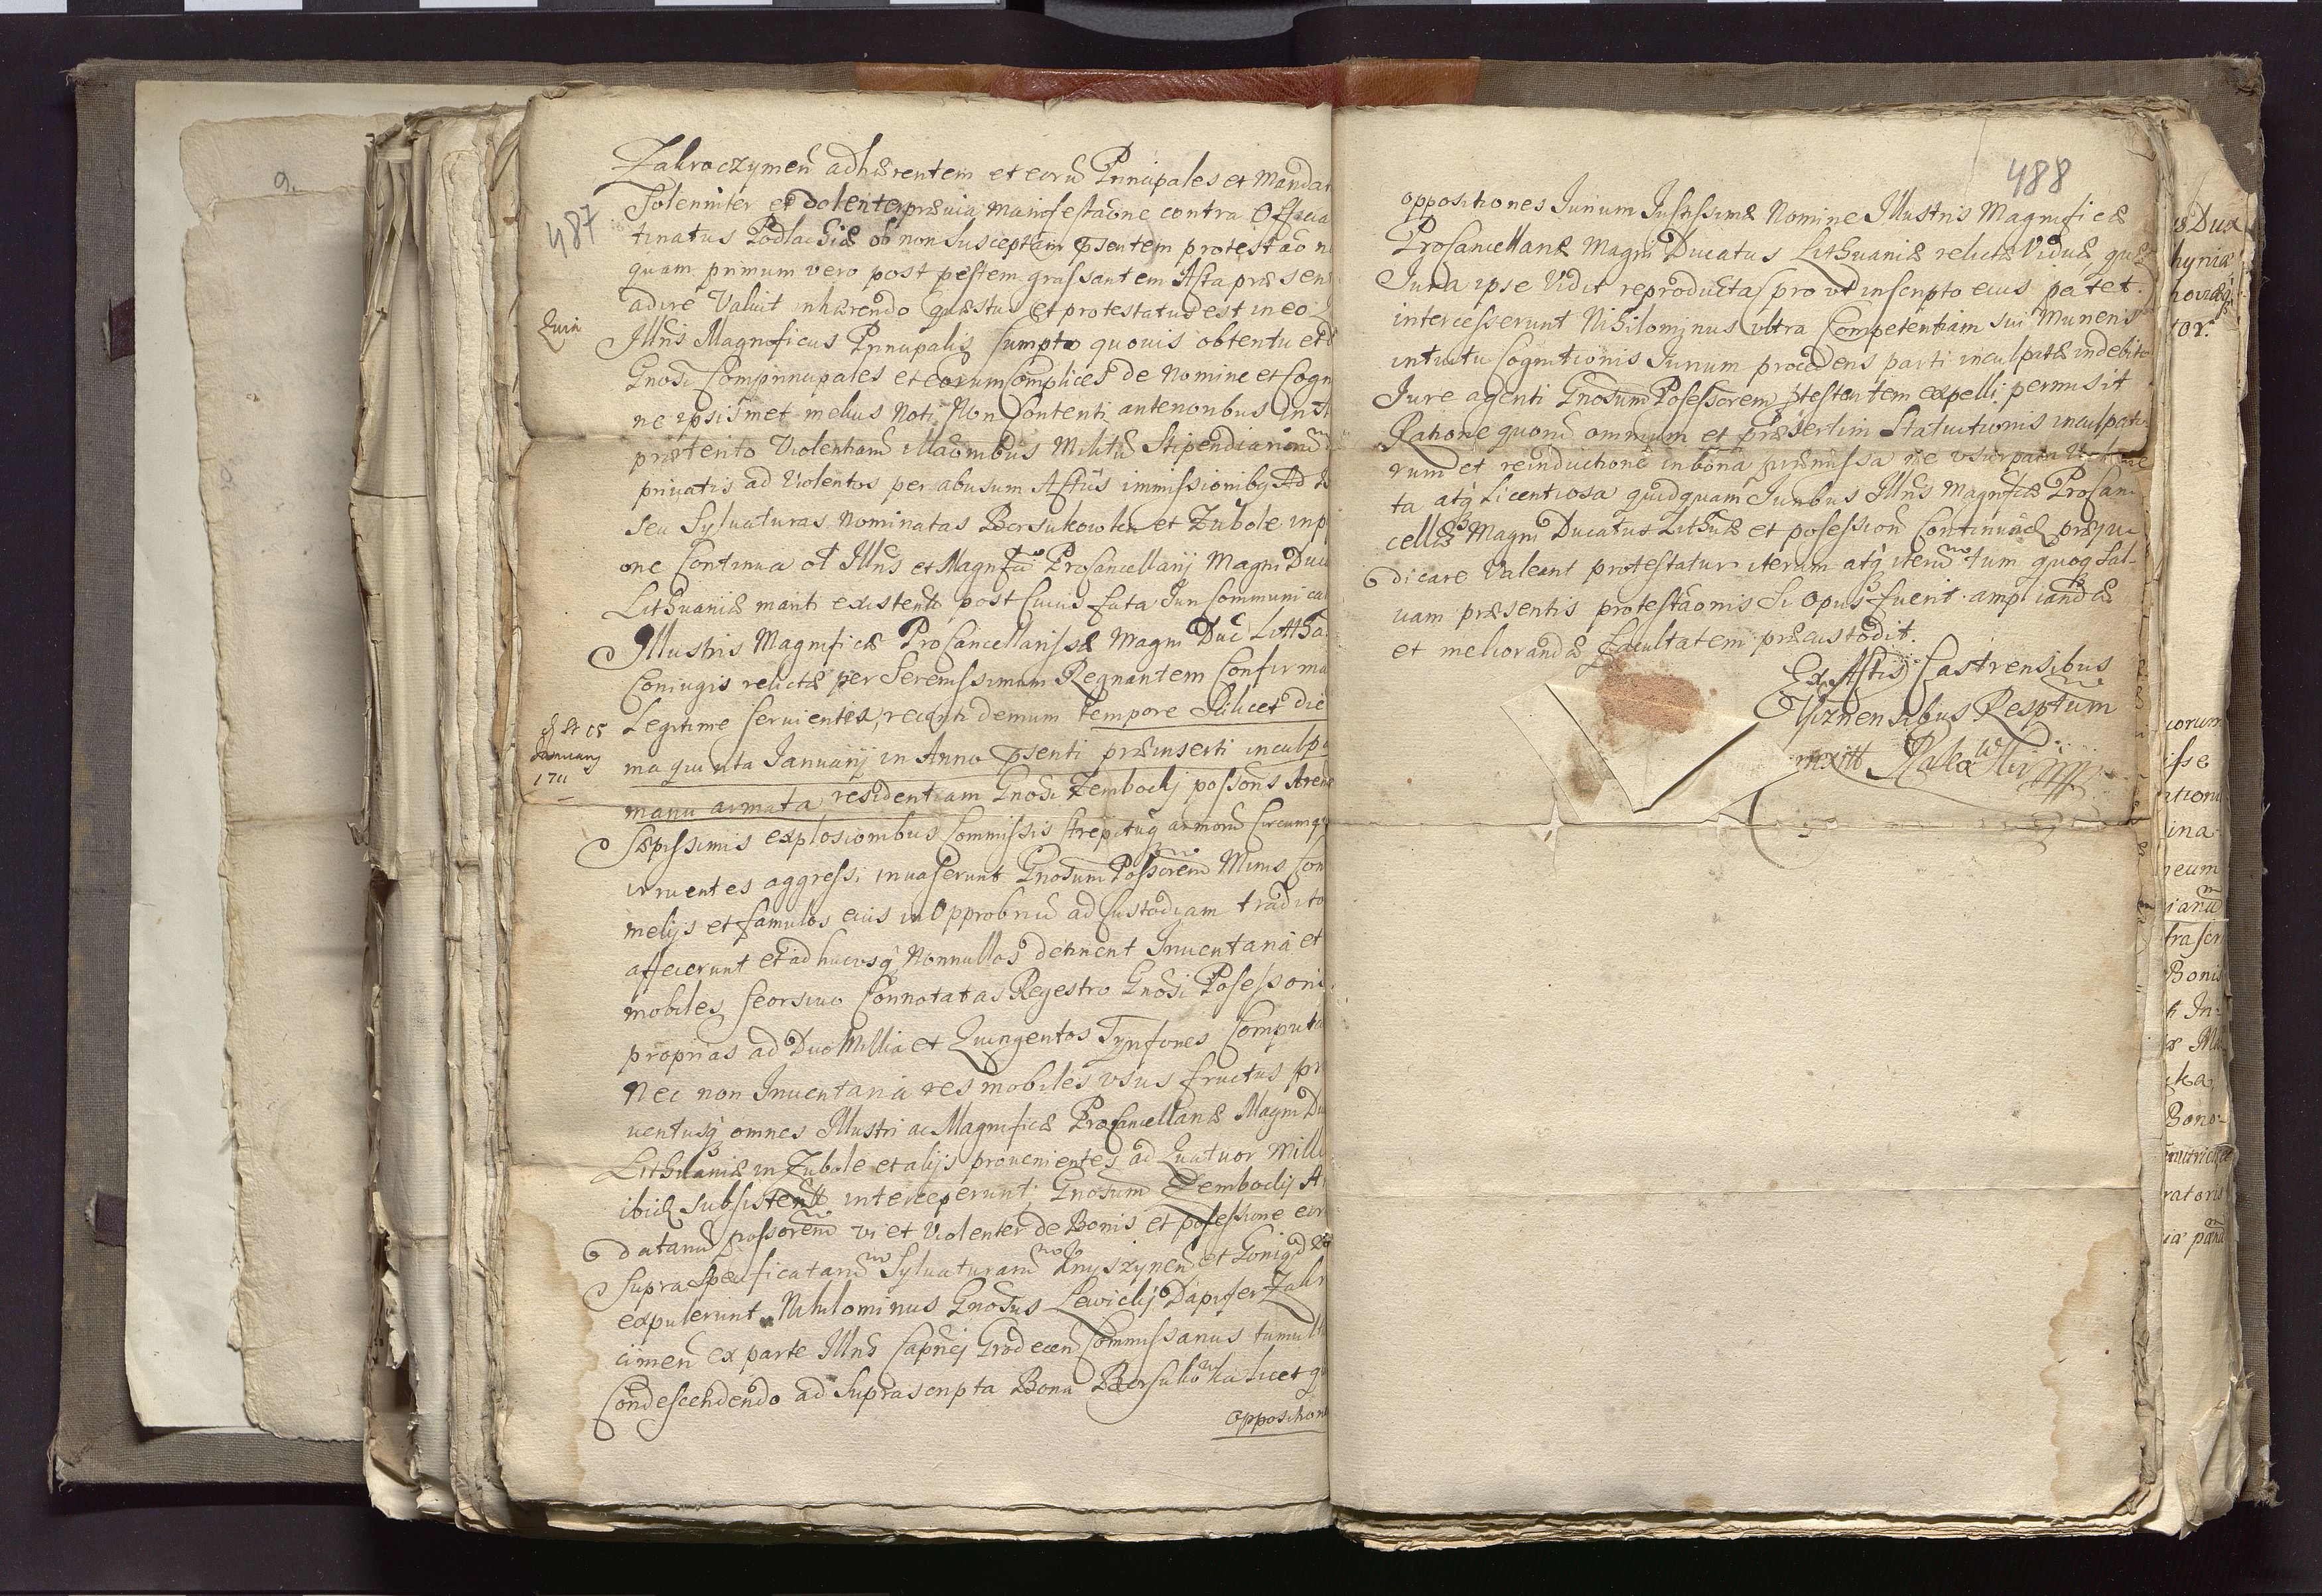 487
Zakroczymen̄ adhærentem et eorū Principales et Mandat
Solenniter et dolenter prævia manifestāone contra Officia
tinatus Podlachiæ ob non susceptam p̄sentem protestāo n
quam primum vero post pestem grassantem Acta præsen
adire Valuit inhærendo quæstus et protestatus est in eo
Quia
Illn̄s Magnificus Prīnupalis sumpto quovis obtentu et
Gnōsi Comprincipales et eorum Complices de Nomine et Cogn
ne ipsismet melius Noti Non Contenti anterioribus in
præterito Violentiarū illāonibus Militū Stipendiariorū
privatis ad Violentos per abusum Actûs immissionibq̨ Ad
seu Sylvaturas Nominatas Bersukowka et Zubole in p
one Continua ol Illn̄s et Magnfci Procancellarij Magni Duc
Lithuaniæ mariti existenti post cuius fata Juri Communica
Illustris Magnificæ Procancellarissæ Magni Duc̄ Litthā
Coniugis relictæ per Serenissimum Regnantem Confirma
Legitime servientia, recenti demum tempore scilicet die
d St 15
January
1711
ma quinta Januarij in Anno p̄senti præinserti inculpa
manu armata residentiam Gnōsi Zembocky possoris
Sæpissimis explosionibus Commissis strepituq̨ armorū Circumq
irruentes aggressi invaserunt Gnōsum Possōrem Mimis Con
melijs et famulos eius in Opprobriū ad Custodiam tradito
affecerunt et ad hucusq̨ Nonnullos detinent Inventaria et
mobiles seorsivo Connotatas Regestro Gnōsi Possessoris
proprias ad Duo Millia et Quingentos Tynfones Computa
Nec non Inventaria res mobiles usus fructus pr
ventusq̨ omnes Illustri ac Magnificæ Procancellariæ Magni Du
Lithuaniæ in Zubole et alijs provenientes ad Quatuor Milli
ibid subsistenti interceperunt. Gnōsum Zembocky A
datariū possōrem vi et Violenter de Bonis et possessione eor
Supra Specificatarū Sylvaturarū Knyszynen̄ et Goniądz
expulerunt. Nihilominus Gnōsus Lewicky Dapifer Zakr
cimen̄ ex parte Illn̄s Capn̄ej Grodecen̄ Commissarius tumult
Condescendendo ad Suprascripta Bona Bersukowka licet q
opposition
488
oppositiones Iurium Iustissimæ Nomine Illustris Magnificæ
Procancellariæ Magni Ducatus Lithuaniæ relictæ Viduæ, quæ
Jura ipse Vidit reproducta pro ut inscripto eius patet.
intercesserunt Nihilominus ultra Competentiam sui Muneris
intuitu Cognitionis Iurium procedens parti inculpatæ indebite
Jure agenti Gnōsum Possessorem p̄testantem expelli permisit
Ratione quorū omnium et præsertim Statuitionis inculpato
rum et reinductione in bona præmissa ne usurpata
ta atq̨ licentiosa quidquam Iuribus Illn̄s Magnificæ Procan
cellæ Magni Ducatus Lithuæ et possessioni Continuæ præju
dicare Valeant protestatur iterum atq̨ iterū tum quoq̨ sal-
vam præsentis protestāonis si opus fuerit ampliandæ
et meliorandæ facultatem præcustodit.
Ex Actis Castrensibus
Wiznensibus Resptum
s Dux
hyniæ
corum
isse
ina
neum
Bonis
Bono-